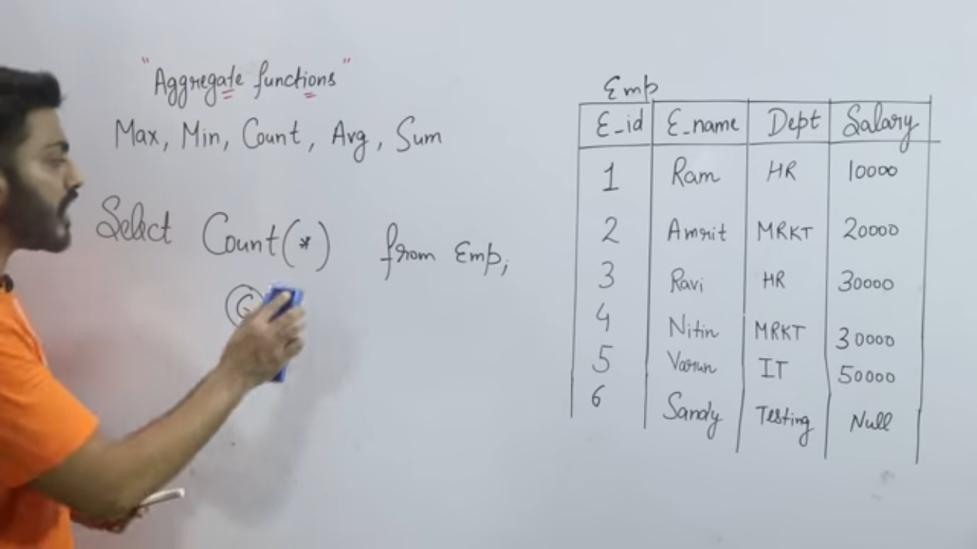 "Aggregate functions"
Max, Min, Count, Avg, Sum
Select Count(*) from Emp;
6
Emp
E_id E_name Dept Salary
1 Ram HR 10000
2 Amrit MRKT 20000
3 Ravi HR 30000
4 Nitin MRKT 30000
5 Varun IT 50000
6 Sandy Testing Null